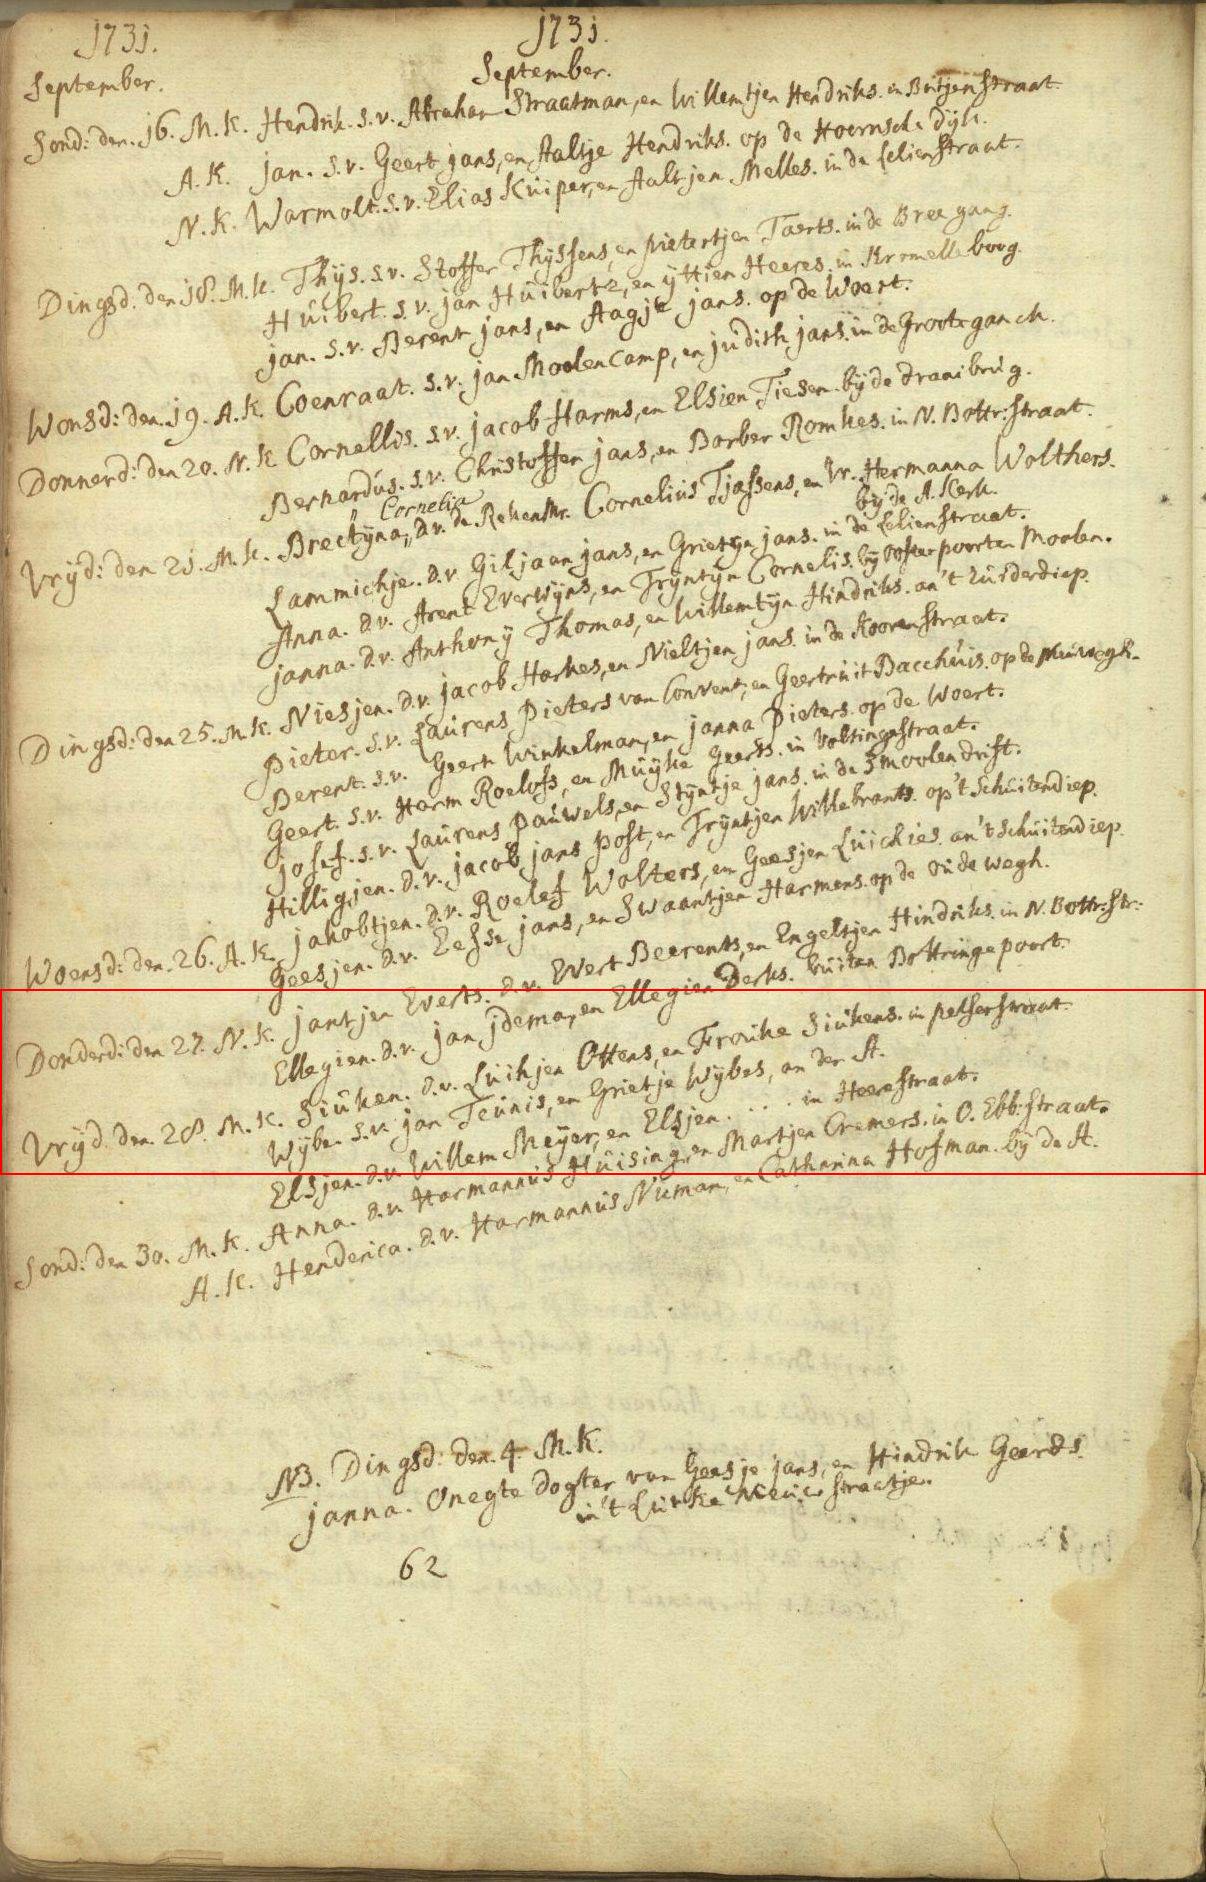 1731. 1731.
September. September.
Sond: den. 16. M. K. Hendrik. s.v. Abraham Straatman, en Willemtjen Hendriks. in Butjenstraat.
A. K. Jan. s.v. Geert jans, en Aaltje Hendriks. op de Hoornsche Dyk.
N. K. Warmolt. s.v. Elias Kuiper, en Aaltjen Melles. in de Lelienstraat.
Dingsd: den 18. M. K. Thijs. s.v. Stoffer Thijssens, en pietertjen Taerts. in de Bree gang.
Huibert. s.v. jan Huibertz, en ijttien Heeres. in Kromelleboog.
jan. s.v. Berent jans, en Aagje jans. op de Woert.
Wonsd: den. 19. A. K. Coenraat. s.v. jan Moolencamp, en judith jans. in de Groote ganch.
Donnerd: den 20. N. K. Cornellis. s.v. jacob Harms, en Elsien Tiesen. bij de draaibrug.
Bernardus. s.v. Christoffer jans, en Barber Romkes. in N. Bottr: straat.
Cornelia
Vrijd: den 21. M. K. Brectijna,, d.v. de Rekenmr. Cornelius Tjassens, en Vr. Hermanna Wolthers.
bij de A. Kerk.
Lammichje. d.v. Giljaan jans, en Grietyn jans. in de Lelienstraat.
Anna. d.v. Arent Everwijns, en Trijntijn Cornelis. bij Oosterpoorten Moolen.
janna. d.v. Anthonij Thomas, en Willemtijn Hindriks. an't Zuiderdiep.
Dingsd: den 25. M. K. Niesjen. d.v. jacob Harkes, en Nieltjen jans. in de Koorenstraat.
Pieter. s.v. Laurens Pieters van Convent, en Geertruit Bacchuis. op de
Berent. s.v. Geert Winkelman, en janna Pieters. op de Woert.
Geert. s.v. Harm Roelofs, en Muijke Geerts. in Voltingestraat.
josef. s.v. Laurens Pauwels, en Stijntje jans. in de 3 moolendrift.
Hilligjen. d.v. jacob jans Post, en Trijntjen Willebrants. op't Schuitendiep.
Woensd: den. 26. A. K. jakobtjen. d.v. Roelef Wolters, en Geesjen Luichies. an't schuitendiep.
Geesjen. d.v. Eesse jans, en Swaantjen Harmens. op de oude wegh.
Donderd: den 27. N. K. jantjen Everts. d.v. Evert Beerents, en Engeltjen Hindriks. in N. Bottr: str:
Ellegien. d.v. jan jdema, en Ellegien Derks. buiten Bottringepoort.
Vrijd. den. 28. M. K. Siuken. d.v. Luikjen Ottens, en Frouke Siukens. in pelserstraat.
Wijbe. s.v. jan Teunis, en Grietje Wijbes, an der A.
Elsjen. d.v. Willem Meijer, en Elsjen. . . . in Heerestraat.
Sond: den 30. M. K. Anna. d.v. Harmannus Huising, en Martjen Cremers. in O. Ebb: straat.
A. K. Henderica. d.v. Harmannus Numan, en Catharina Hofman. bij de A.
NB. Dingsd: den. 4. M. K.
janna. Onegte Dogter van Geesje jans, en Hindrik Geerds.
in't Lutke Nieuwstraatje.
62